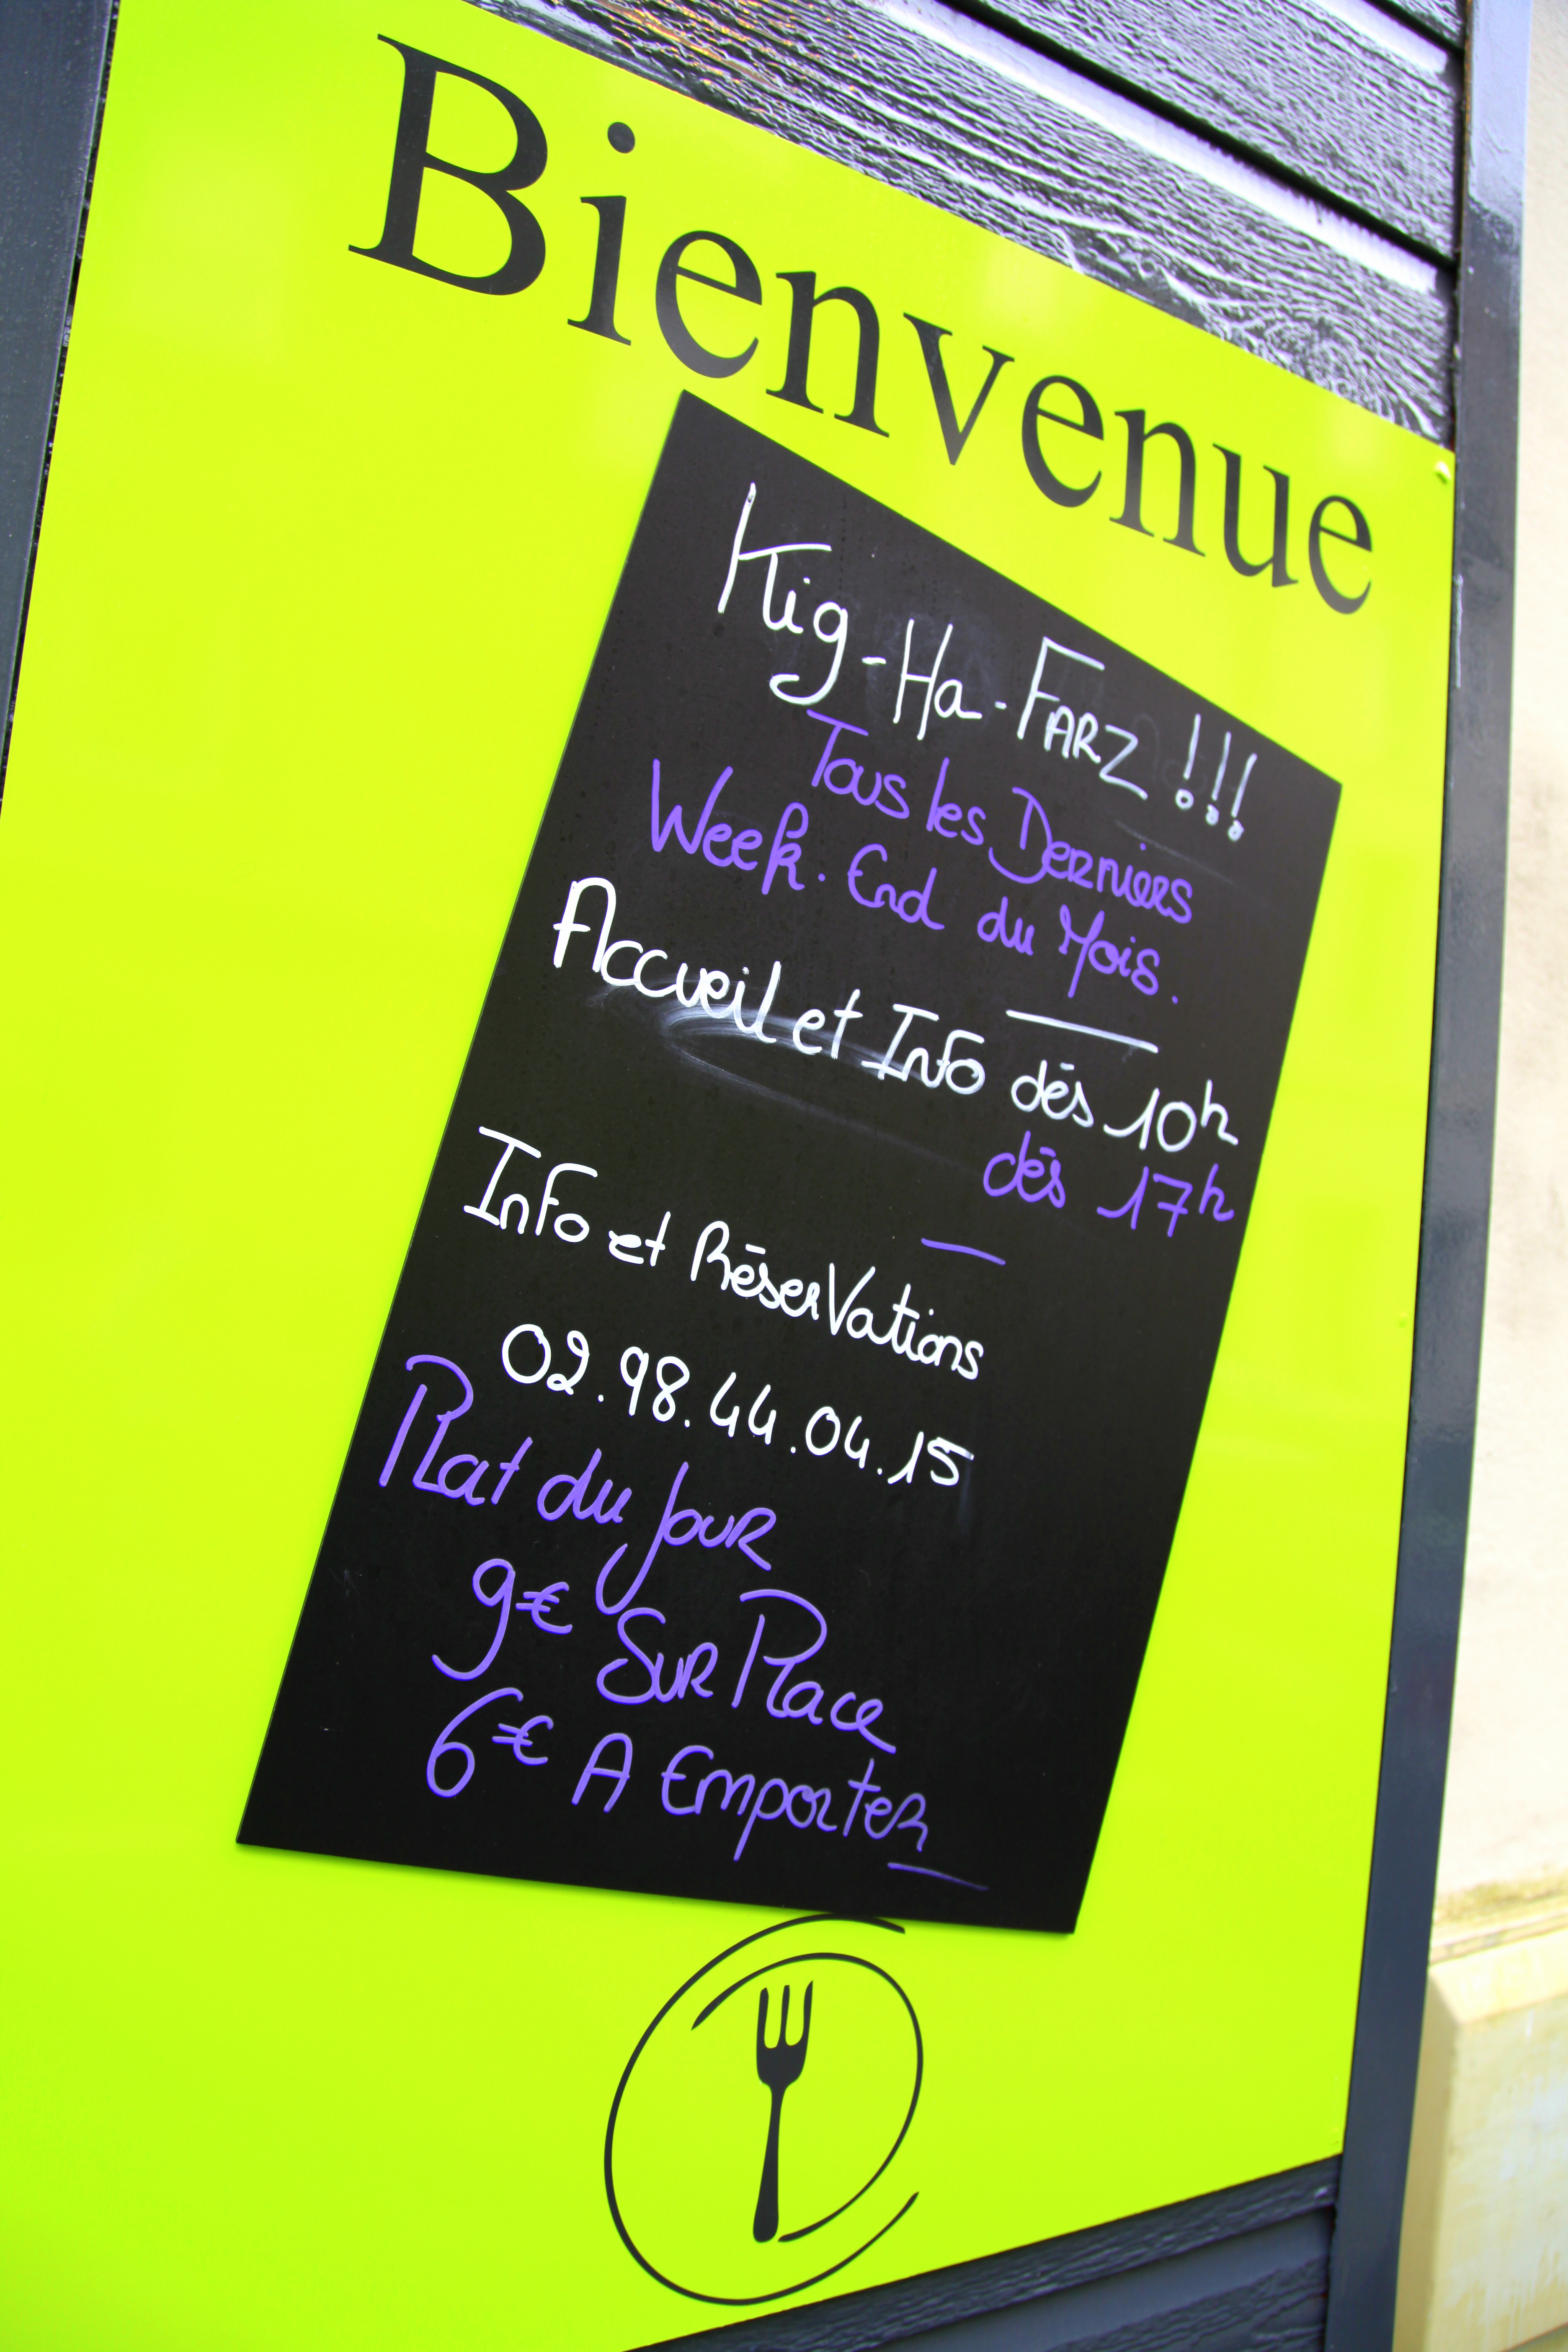 Bienvenue
Kig-Ha-FARZ !!!
Tous les Derniers
Week. End du Mois.
Accueil et Info dés 10h
dés 17h
Info et RéserVations
02.98.44.04.15
Plat du Jour
9€ Sur Place
6€ A Emporter